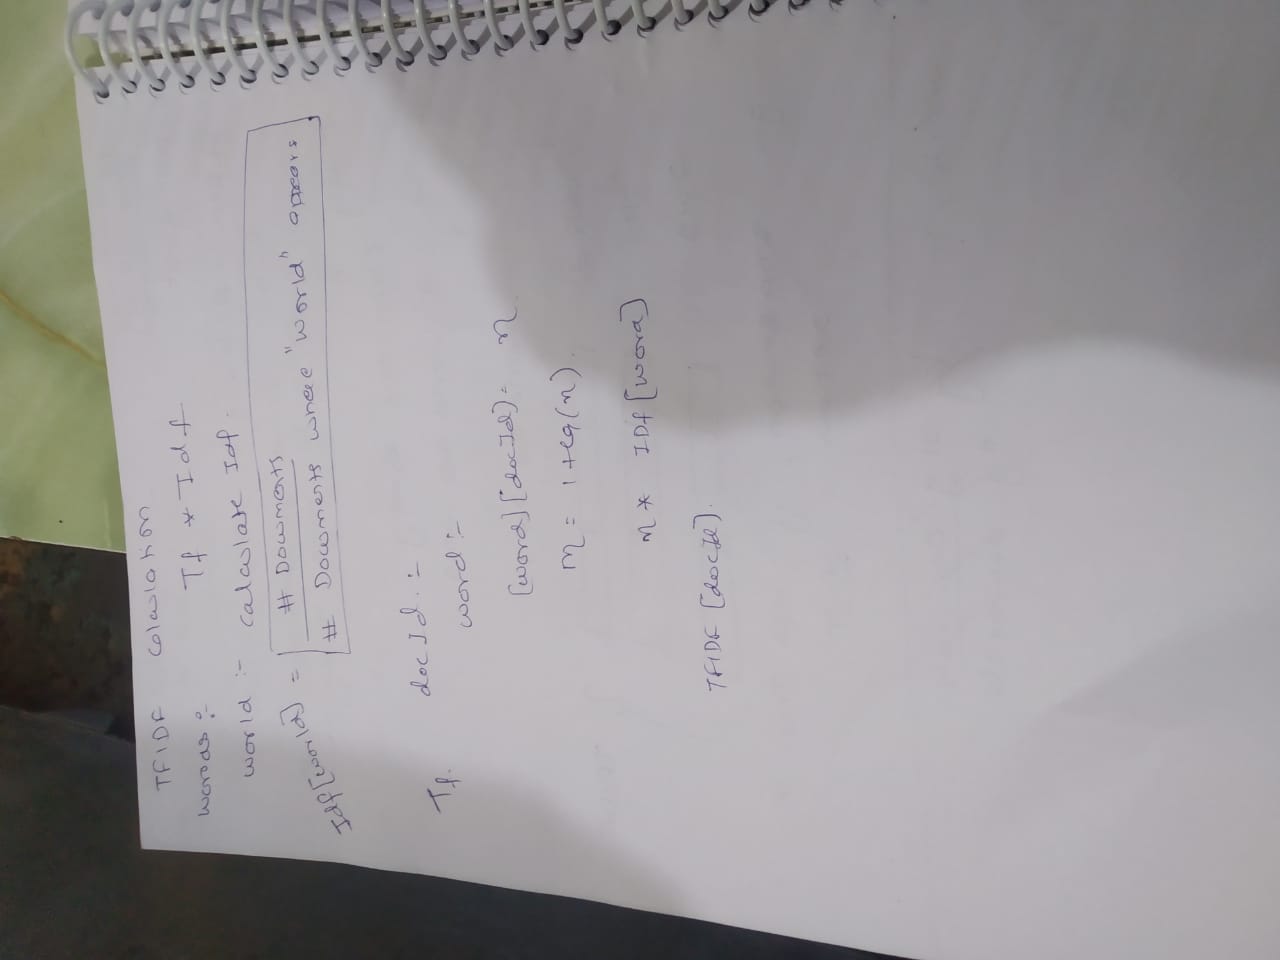 TFIDF Calculation
words :- Tf * Idf
world :- calculate Idf.
Idf[world] = # Documents
# Documents where "world" appears
Tf. docId. :-
word :-
[word][docId] = n
m = 1+lg(n).
m * IDf[word]
TFIDF [docId].